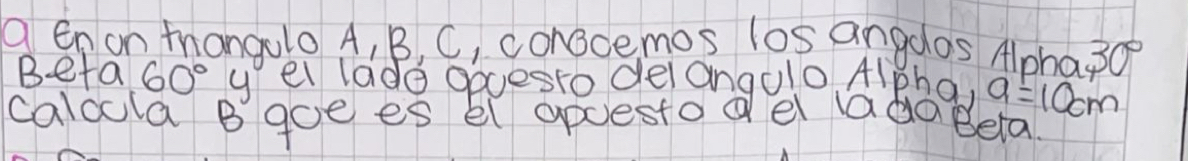 a En un triangulo A, B, C, conocemos los angulos Alpha, 30°
Beta 60° y el lado opuesto del angulo Alpha, a=10cm
Calcula B que es el apuesto a el lado Beta.